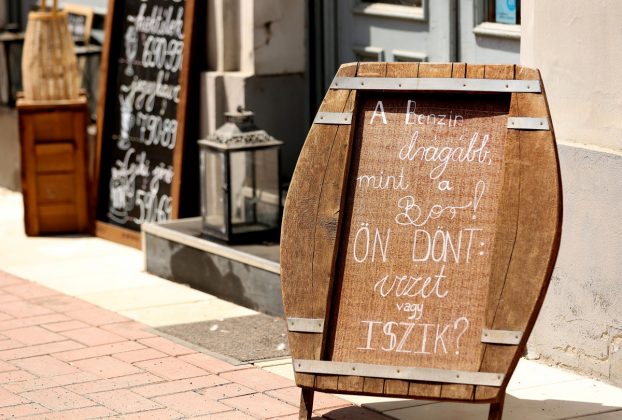 A Benzin
drágább,
mint a
Bor!
ÖN DÖNT:
vezet
vagy
ISZIK?
690.-
790.-